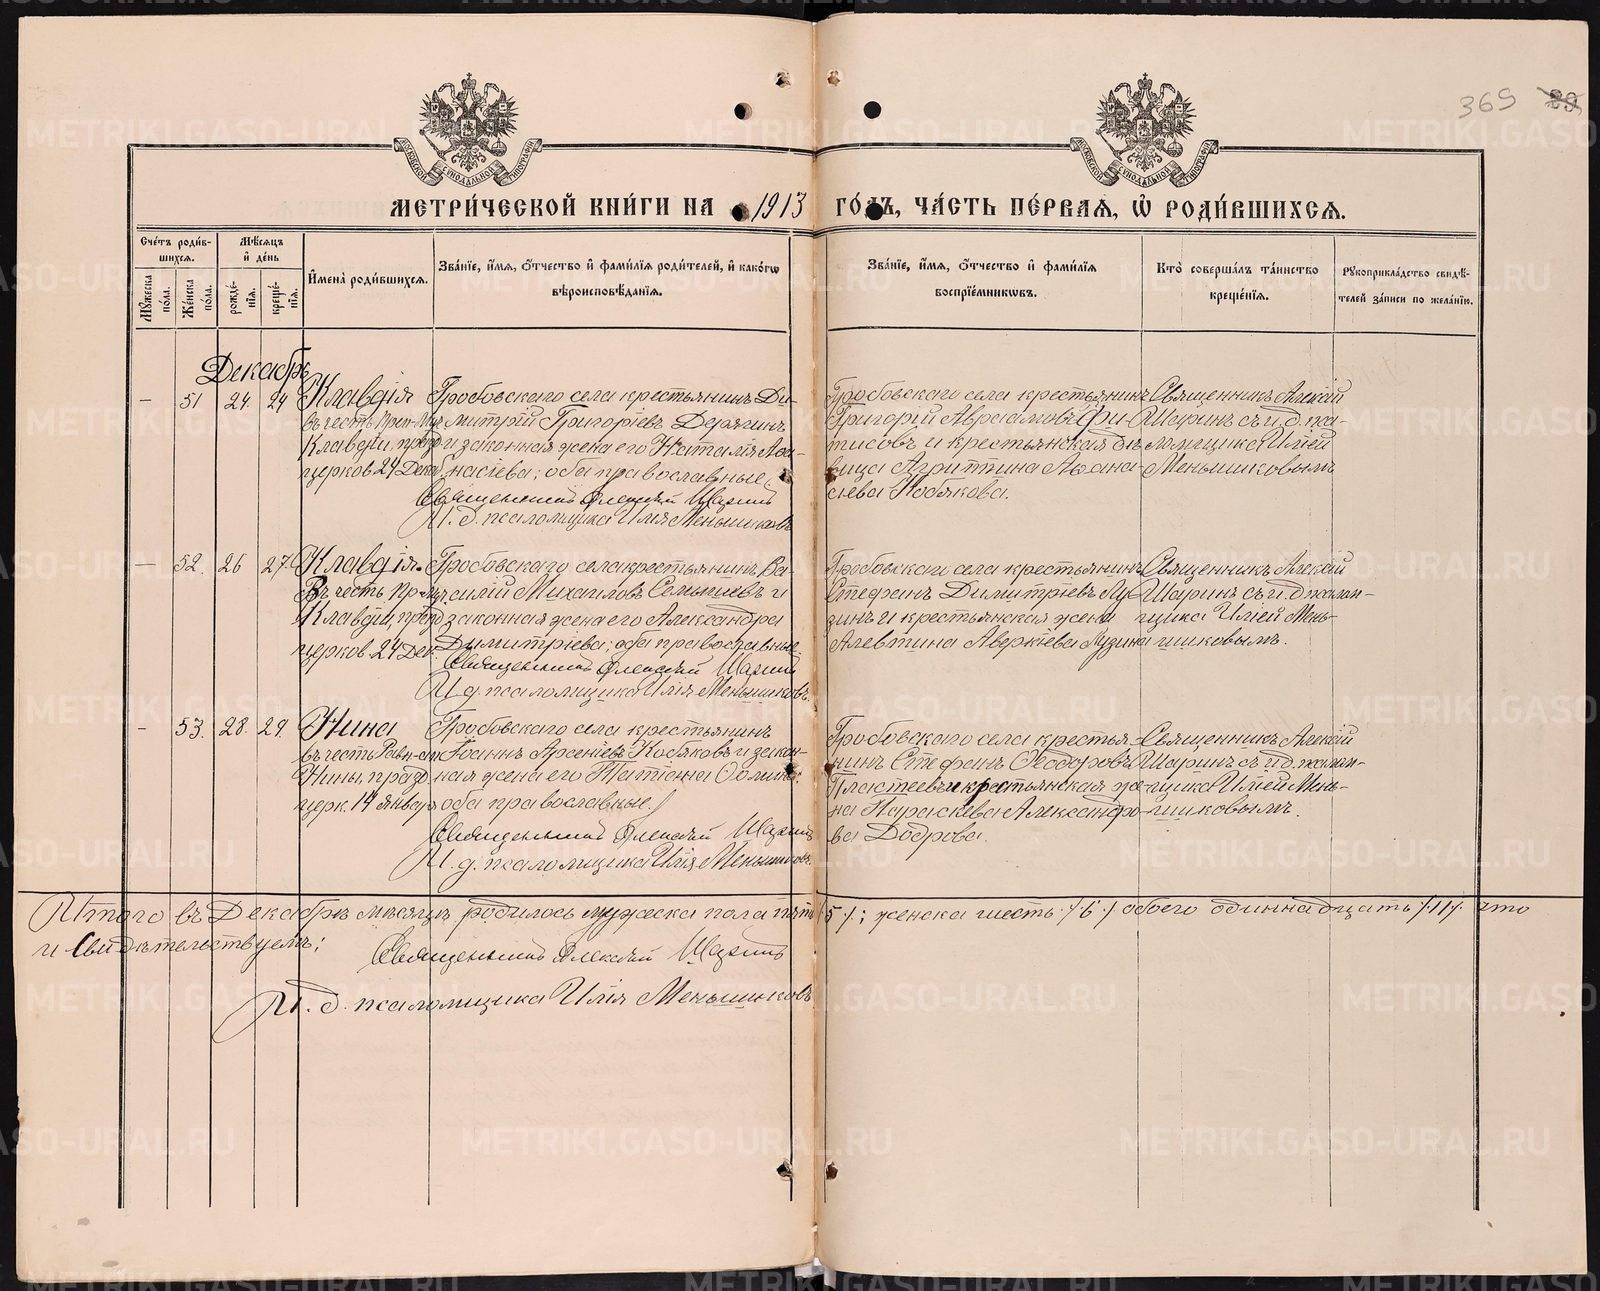 369 29
МЕТРИ́ЧЕСКОЙ КНИ́ГИ НА 1913 ГО́ДЪ, ЧА́СТЬ ПЕ́РВАЯ, Ѡ҆ РОДИ́ВШИХСЯ.
Сче́тъ роди́вшихся.
Му́жеска по́ла.
Же́нска по́ла.
Мѣ́сяцъ и҆ де́нь
рожде́нїя.
креще́нїя.
И҆мена̀ роди́вшихся.
Зва́нїе, и҆́мя, ѻ҆́тчество и҆ фами́лїя роди́телей, и҆ како́гѡ
вѣроисповѣ́данїя.
Зва́нїе, и҆́мя, ѻ҆́тчество и҆ фами́лїя
воспрїе́мникѡвъ.
Кто̀ соверша́лъ та́инство
креще́нїя.
Рꙋкоприкла́дство свидѣ́-
телей за́писи по жела́нїю.
Декабрь
— 51 24. 24 Клавдія
въ честь Преп-Муч
Клавдіи, празд
церков. 24 Декаб.
Гробовскаго села крестьянинъ Ди-
митрій Григоріевъ Дерягинъ
и законная жена его Наталія Аѳа-
насіева; оба православные.
Священникъ Алексій Шаринъ
И. д. псаломщика Илія Меньшиковъ
Гробовскаго села крестьянинъ
Григорій Авраамовъ Фи-
тисовъ и крестьянская дѣ-
вица Агриппина Аѳана-
сіева Кобякова.
Священникъ Алексій
Шаринъ съ и. д. пса-
ломщика Иліей
Меньшиковымъ
— 52. 26 27. Клавдія.
Въ честь Пр-Муч.
Клавдіи, празд
церков. 24 Дек
Гробовскаго села крестьянинъ Ва-
силій Михаиловъ и
законная жена его Александра
Димитріева; оба православные.
Священникъ Алексій Шаринъ
И. д. псаломщика Илія Меньшиковъ.
Гробовскаго села крестьянинъ
Стефанъ Димитріевъ Лу-
зинъ и крестьянская жена
Алевтина Аверкіева Лузина
Священникъ Алексій
Шаринъ съ и. д. псалом-
щика Иліей Мень-
шиковымъ.
— 53. 28. 29. Нина
въ честь Равн-ап
Нины, празд
церк. 14 Января
Гробовскаго села крестьянинъ
Іоаннъ Арсеніевъ Кобяковъ и закон-
ная жена его Татіана
оба православные.
Священникъ Алексій Шаринъ
И. д. псаломщика Илія Меньшиковъ.
Гробовскаго села крестья-
нинъ Стефанъ Ѳеодоровъ
Пластеевъ и крестьянская же-
на Параскева Александро-
ва Додрова.
Священникъ Алексій
Шаринъ съ и. д. псалом-
щика Иліей Мень-
шиковымъ.
Итого въ Декабрѣ мѣсяцѣ родилось мужеска пола пять /5/; женска шесть /6/ обоего одиннадцать /11/. что
и свидѣтельствуемъ:
Священникъ Алексій Шаринъ
И. д. псаломщика Илія Меньшиковъ
METRIKI.GASO-URAL.RU